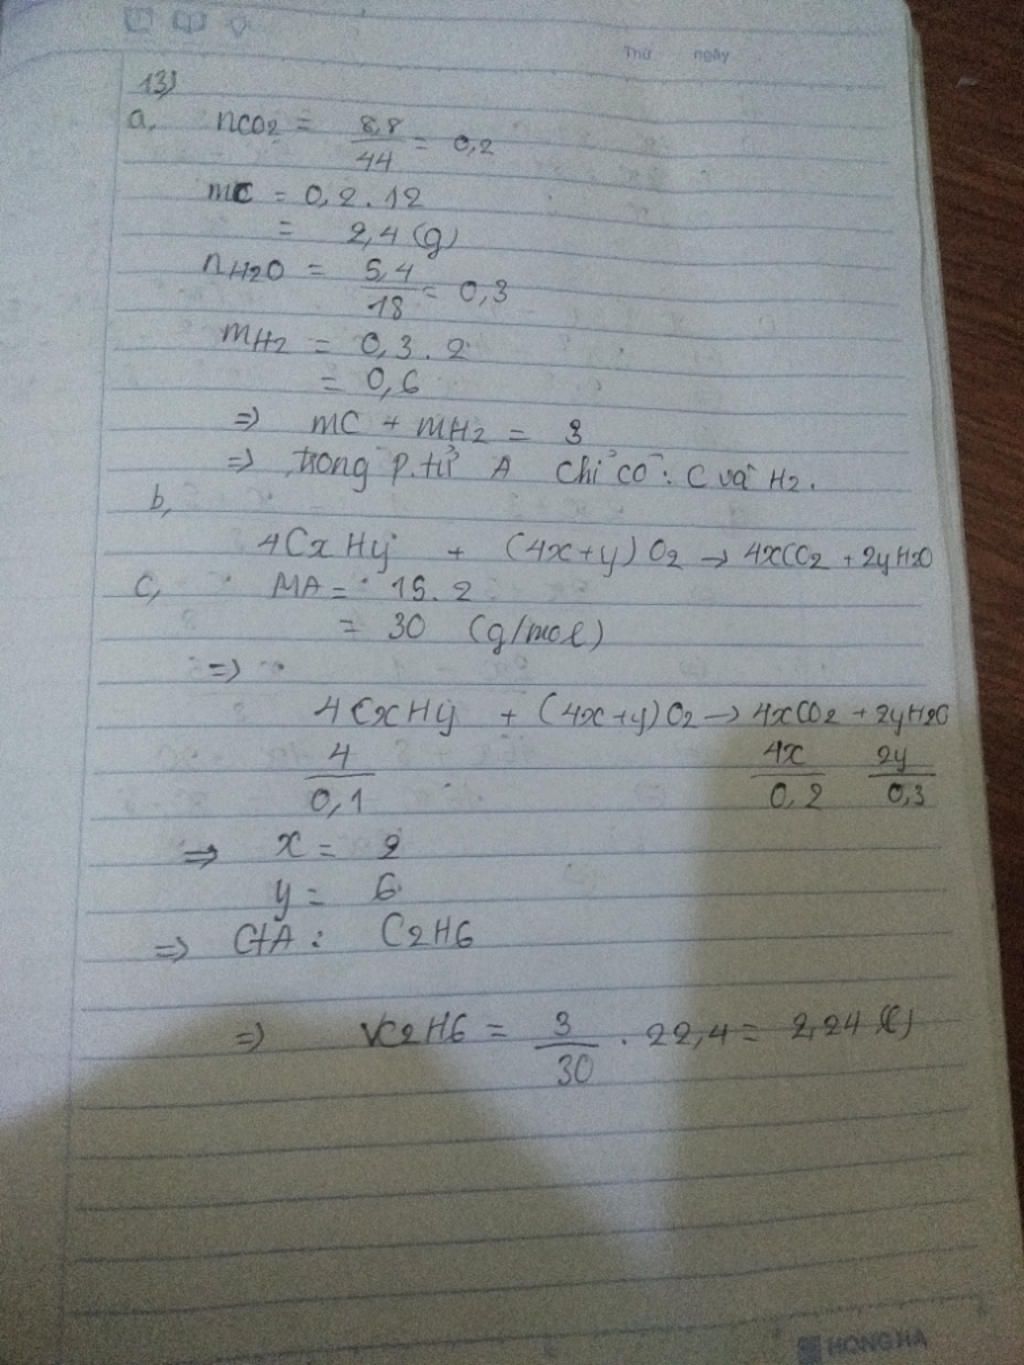 Thứ ngày
13)
a, nCO2 = 8,8/44 = 0,2
mC = 0,2.12
= 2,4 (g)
nH2O = 5,4/18 = 0,3
mH2 = 0,3.2
= 0,6
=> mC + mH2 = 3
=> trong p.tử A chỉ có: C và H2.
b,
4CxHy + (4x+y)O2 → 4xCO2 + 2yH2O
c, MA = 15.2
= 30 (g/mol)
=>
4CxHy + (4x+y)O2 → 4xCO2 + 2yH2O
4/0,1 4x/0,2 2y/0,3
=> x = 2
y = 6
=> CTA : C2H6
=> VC2H6 = 3/30 . 22,4 = 2,24 (l)
HONG HA